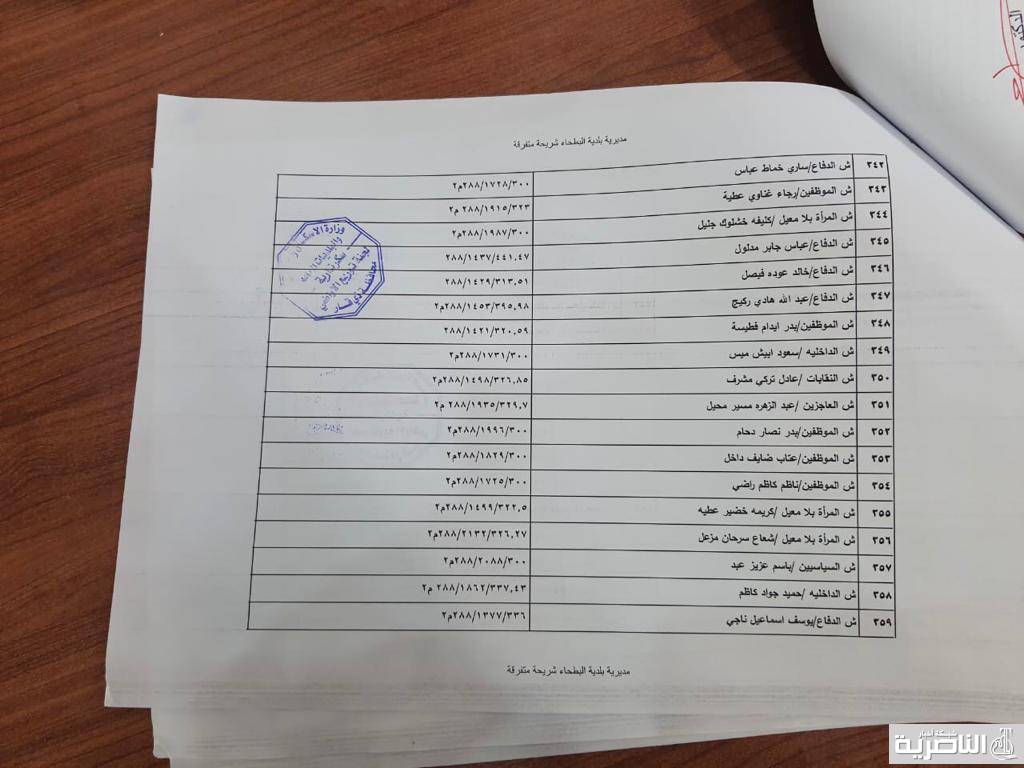 مديرية بلدية البطحاء شريحة متفرقة
٣٤٢ ش الدفاع/ساري خماط عباس ٢٨٨/١٧٢٨/٣٠٠م٢
٣٤٣ ش الموظفين/رجاء غناوي عطية ٢٨٨/١٩١٥/٣٢٣ م٢
٣٤٤ ش المرأة بلا معيل /كنيفه خشلوك جليل ٢٨٨/١٩٨٧/٣٠٠م٢
٣٤٥ ش الدفاع/عباس جابر مدلول ٢٨٨/١٤٣٧/٤٤١,٤٧
٣٤٦ ش الدفاع/خالد عوده فيصل ٢٨٨/١٤٢٩/٣١٣,٥١
٣٤٧ ش الدفاع/عبد الله هادي ركيج ٢٨٨/١٤٥٣/٣٩٥,٩٨م٢
٣٤٨ ش الموظفين/بدر ايدام فطيسة ٢٨٨/١٤٢١/٣٢٠,٥٩
٣٤٩ ش الداخليه /سعود ابيش ميس ٢٨٨/١٧٣١/٣٠٠م٢
٣٥٠ ش النقابات /عادل تركي مشرف ٢٨٨/١٤٩٨/٣٢٦,٨٥م٢
٣٥١ ش العاجزين /عبد الزهره مسير محيل ٢٨٨/١٩٣٥/٣٢٩,٧ م٢
٣٥٢ ش الموظفين/بدر نصار دحام ٢٨٨/١٩٩٦/٣٠٠م٢
٣٥٣ ش الموظفين/عتاب ضايف داخل ٢٨٨/١٨٢٩/٣٠٠م٢
٣٥٤ ش الموظفين/ناظم كاظم راضي ٢٨٨/١٧٢٥/٣٠٠م٢
٣٥٥ ش المرأة بلا معيل /كريمه خضير عطيه ٢٨٨/١٤٩٩/٣٢٢,٥م٢
٣٥٦ ش المرأة بلا معيل /شعاع سرحان مزعل ٢٨٨/٢١٣٢/٣٢٦,٢٧م٢
٣٥٧ ش السياسيين /باسم عزيز عبد ٢٨٨/٢٠٨٨/٣٠٠م٢
٣٥٨ ش الداخليه /حميد جواد كاظم ٢٨٨/١٨٦٢/٣٣٧,٤٣ م٢
٣٥٩ ش الدفاع/يوسف اسماعيل ناجي ٢٨٨/١٣٧٧/٣٣٦م٢
وزارة
لجنة توزيع الاراضي
محافظة ذي قار
مديرية بلدية البطحاء شريحة متفرقة
شبكة أخبار
الناصرية